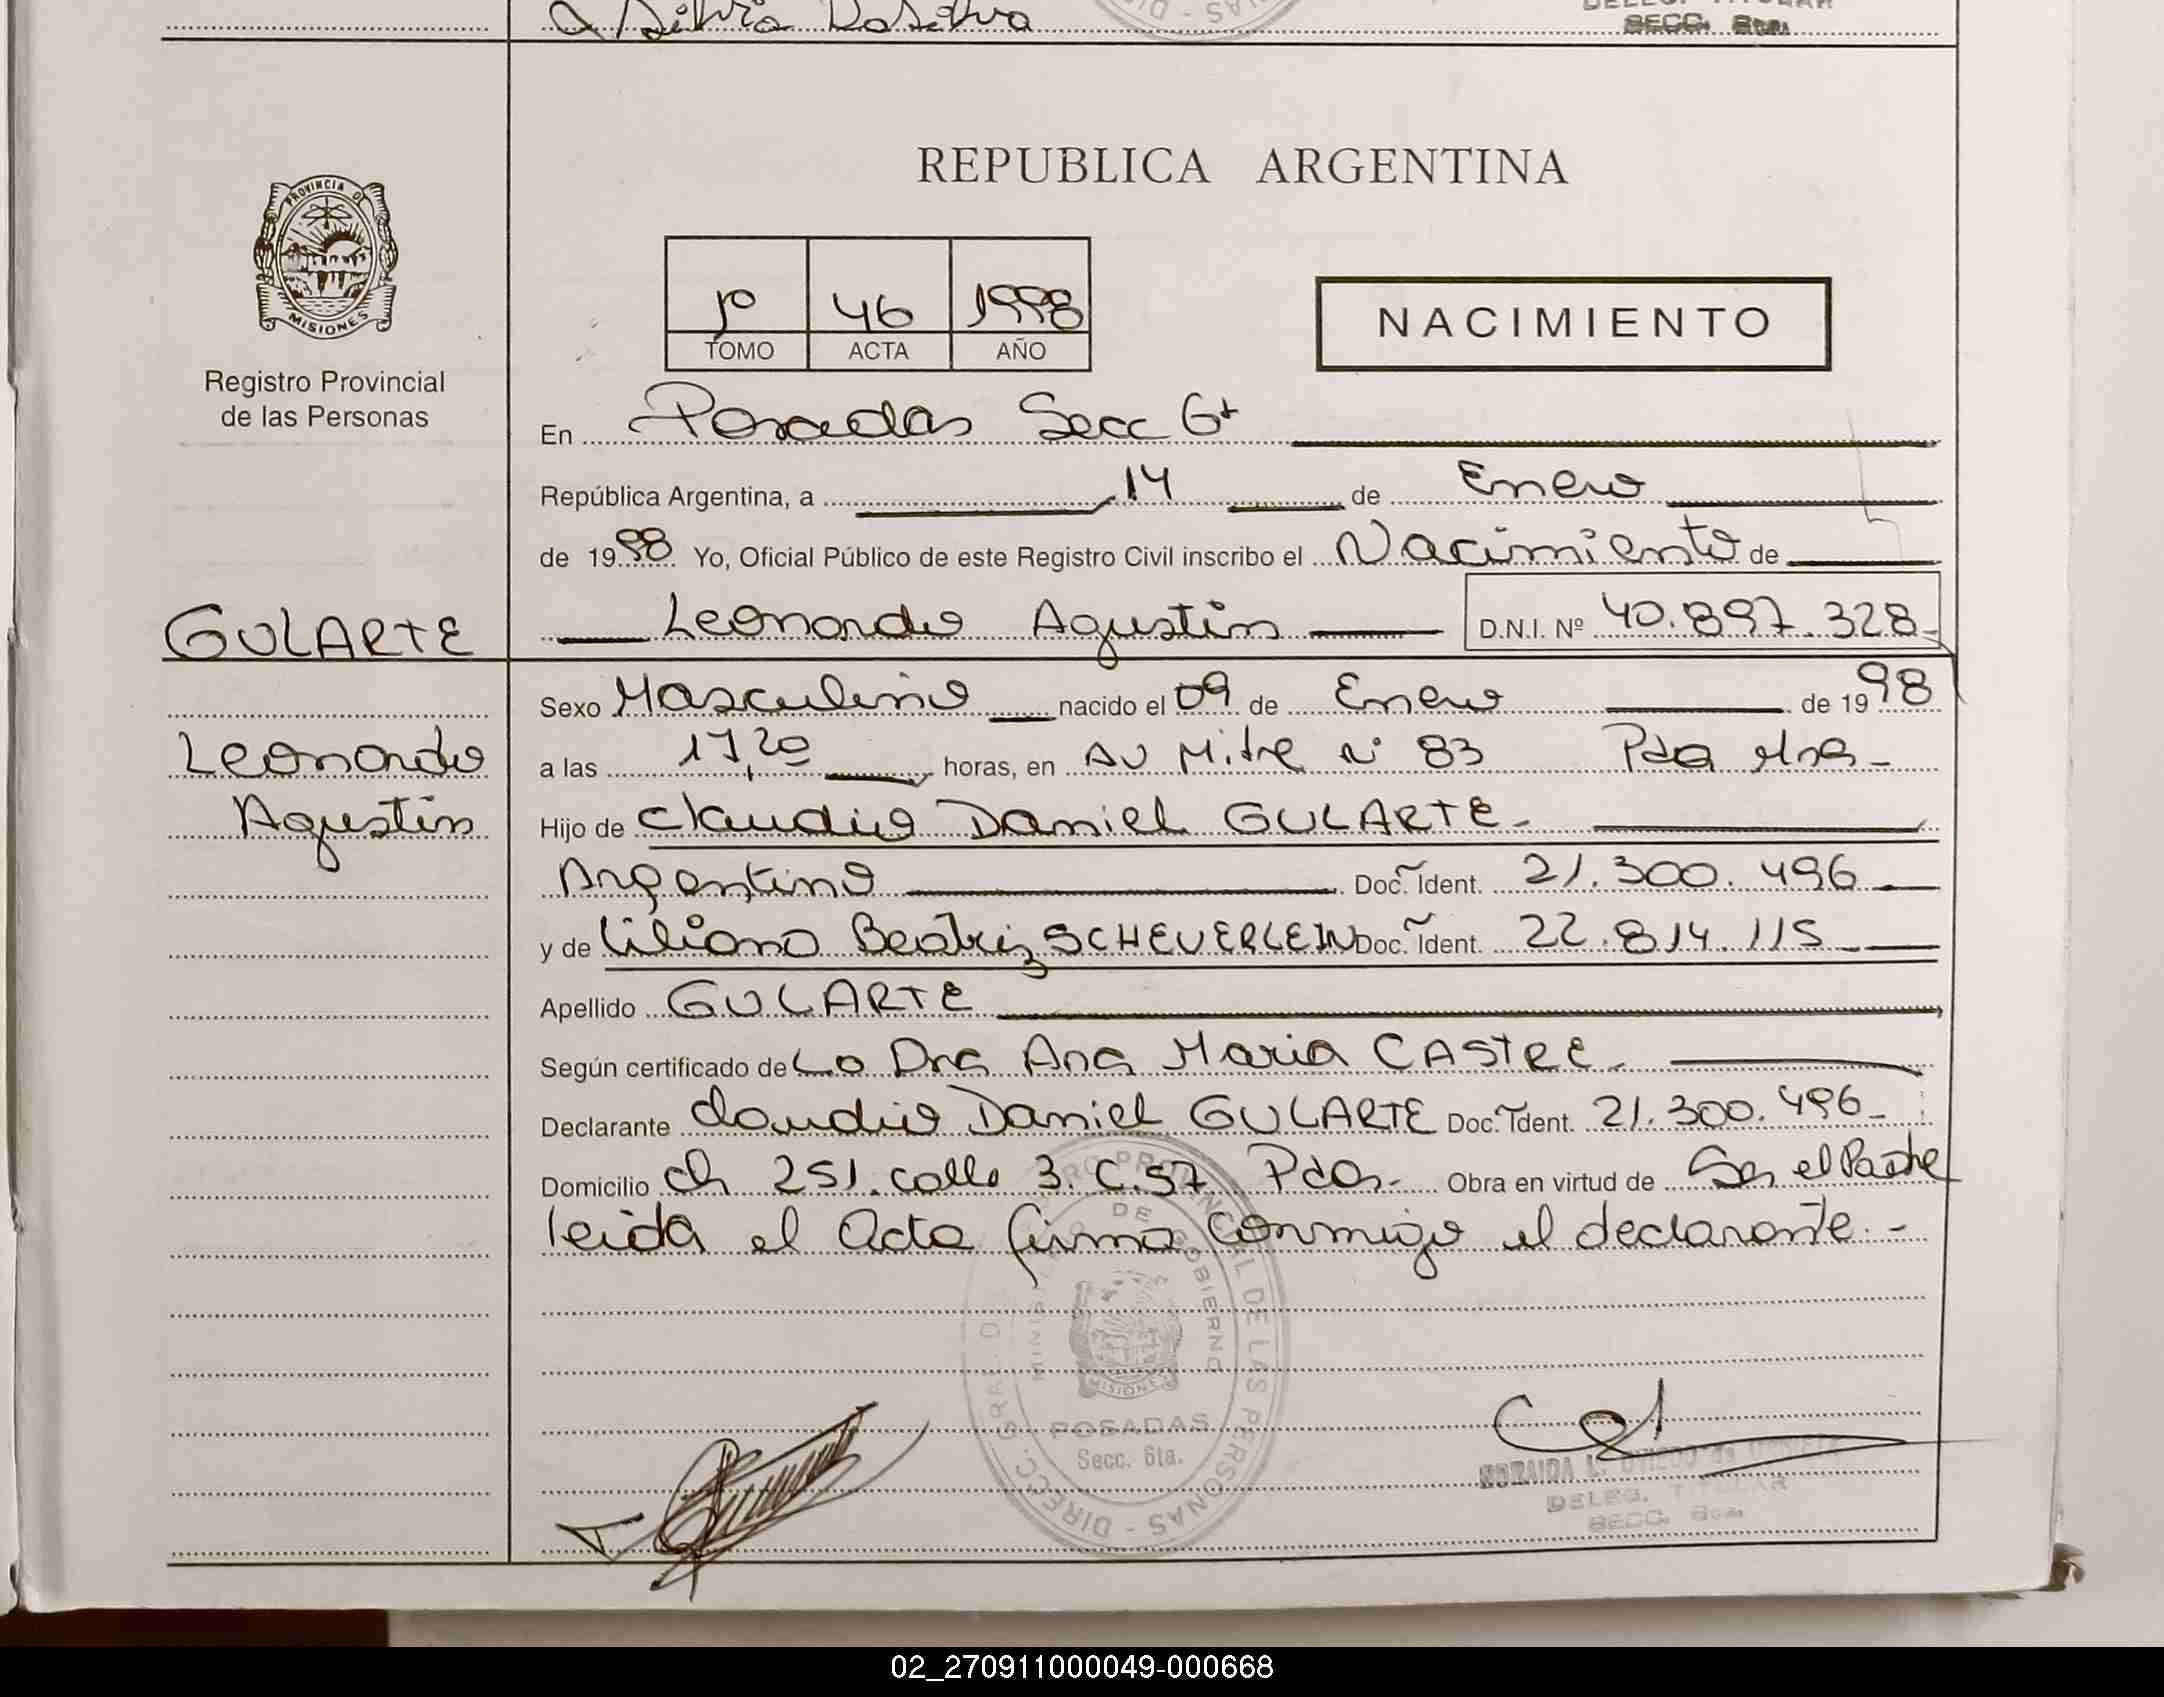 Silvia DaSilva
DELEG. TITULAR
SECC. 6ta.
PROVINCIA DE
MISIONES
Registro Provincial
de las Personas
REPUBLICA ARGENTINA
1º 46 1998
TOMO ACTA AÑO
NACIMIENTO
En Posadas Secc 6ta
República Argentina, a 14 de Enero
de 1998 Yo, Oficial Público de este Registro Civil inscribo el Nacimiento de
GULARTE
Leonardo Agustin D.N.I. Nº 40.897.328-
Sexo Masculino nacido el 09 de Enero de 1998
Leonardo
a las 17,20 horas, en Av Mitre Nº 83 Pdas Mnes-
Agustin
Hijo de Claudio Daniel GULARTE-
Argentino Doc. Ident. 21.300.496
y de Liliana Beatriz SCHEUERLEIN Doc. Ident. 22.814.115
Apellido GULARTE
Según certificado de La Dra Ana Maria CASTRE-
Declarante Claudio Daniel GULARTE Doc. Ident. 21.300.496-
Domicilio Ch 251. calle 3. C.57 Pdas- Obra en virtud de Ser el Padre
leida el Acta firma conmigo el declarante.-
DIRECC. GRAL. DEL REGISTRO PROVINCIAL DE LAS PERSONAS
MINISTERIO DE GOBIERNO
MISIONES
POSADAS
Secc. 6ta.
DELEG. TITULAR
SECC. 6ta.
02_270911000049-000668